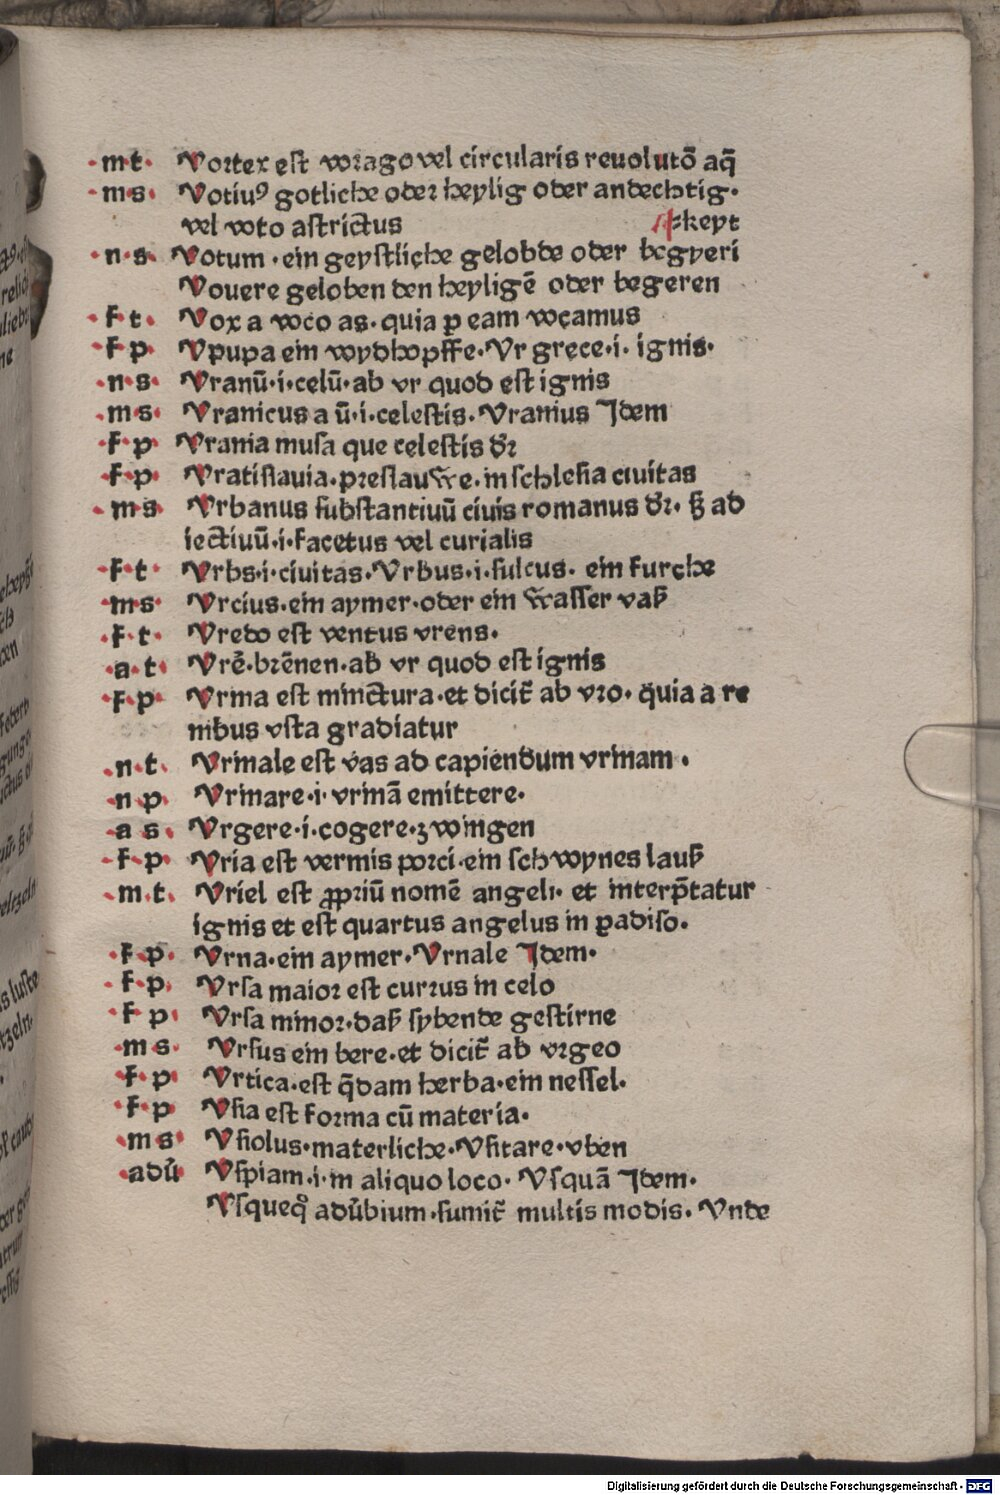 ·m·t· Vortex est vorago vel circularis reuolutō aq̄
·m·s· Votiuꝰ gotliche oder heylig oder andechtig·
vel voto astrictus keyt
·n·s· Votum·ein geystliche gelobde oder begyeri
Vouere geloben den heyligē oder begeren
·f·t· Vox a voco as·quia ꝑ eam vocamus
·f·p· Vpupa ein wydhopffe·Vr grece·i·ignis·
·n·s· Vranū·i·celū·ab vr quod est ignis
·m·s· Vranicus a ū·i·celestis·Vranius Idem
·f·p· Vrania musa que celestis dr̄
·f·p· Vratislauia·preslauwe·in schlesia ciuitas
·m·s· Vrbanus substantiuū ciuis romanus dr̄·sꝫ ad
iectiuū·i·facetus vel curialis
·f·t· Vrbs·i·ciuitas·Vrbus·i·sulcus·ein furche
·m·s· Vrcius·ein aymer·oder ein wasser vaß
·f·t· Vredo est ventus vrens·
·a·t· Vrē·brēnen·ab vr quod est ignis
·f·p· Vrina est minctura·et dicit̄ ab vro·quia a re
nibus vsta gradiatur
·n·t· Vrinale est vas ad capiendum vrinam·
·n·p· Vrinare·i·vrinā emittere·
·a·s· Vrgere·i·cogere·zwingen
·f·p· Vria est vermis porci·ein schwynes lauß
·m·t· Vriel est ꝓpriū nomē angeli·et interp̄tatur
ignis et est quartus angelus in ꝑadiso·
·f·p· Vrna·ein aymer·Vrnale Idem·
·f·p· Vrsa maior est currus in celo
·f·p· Vrsa minor·daß sybende gestirne
·m·s· Vrsus ein bere·et dicit̄ ab vrgeo
·f·p· Vrtica·est q̄dam herba·ein nessel·
·f·p· Vsia est forma cū materia·
·m·s· Vsiolus·materliche·Vsitare·vben
·adū Vspiam·i·in aliquo loco·Vsquā Idem·
Vsqueq̊ adūbium·sumit̄ multis modis·Vnde
Digitalisierung gefördert durch die Deutsche Forschungsgemeinschaft - DFG